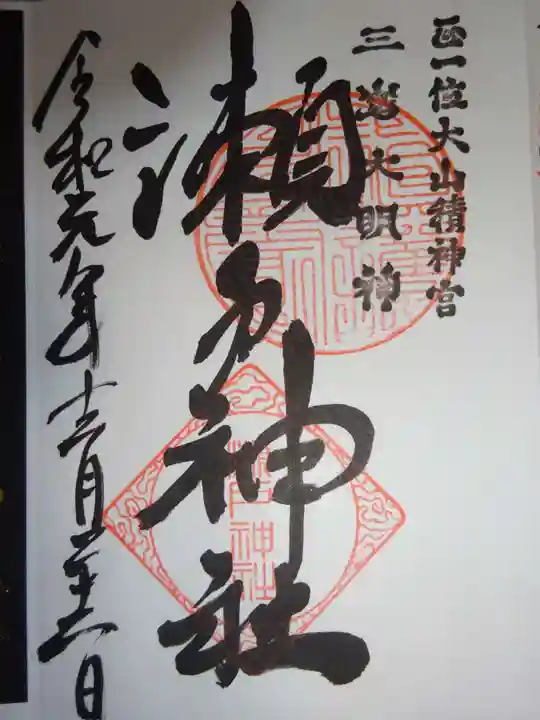 正一位大山積神宮
三嶌大明神
瀬戸神社
令和元年十二月二十六日